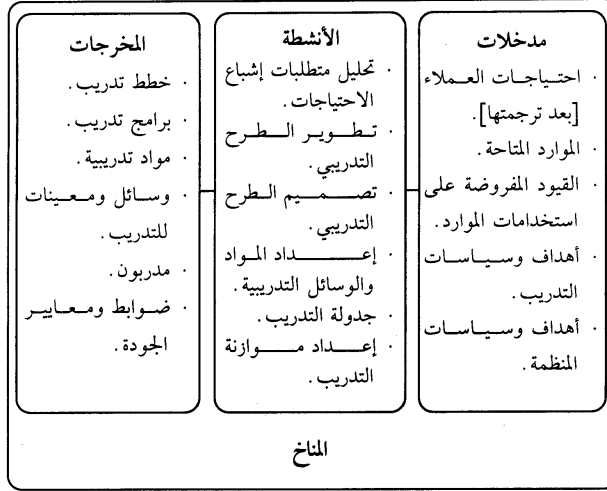 مدخلات
· احتياجات العملاء
[بعد ترجمتها].
· الموارد المتاحة.
· القيود المفروضة على
استخدامات الموارد.
· أهداف وسياسات
التدريب.
· أهداف وسياسات
المنظمة.
الأنشطة
· تحليل متطلبات إشباع
الاحتياجات.
· تطوير الطرح
التدريبي.
· تصميم الطرح
التدريبي.
· إعداد المواد
والوسائل التدريبية.
· جدولة التدريب.
· إعداد موازنة
التدريب.
المخرجات
· خطط تدريب.
· برامج تدريب.
· مواد تدريبية.
· وسائل ومعينات
للتدريب.
· مدربون.
· ضوابط ومعايير
الجودة.
المناخ